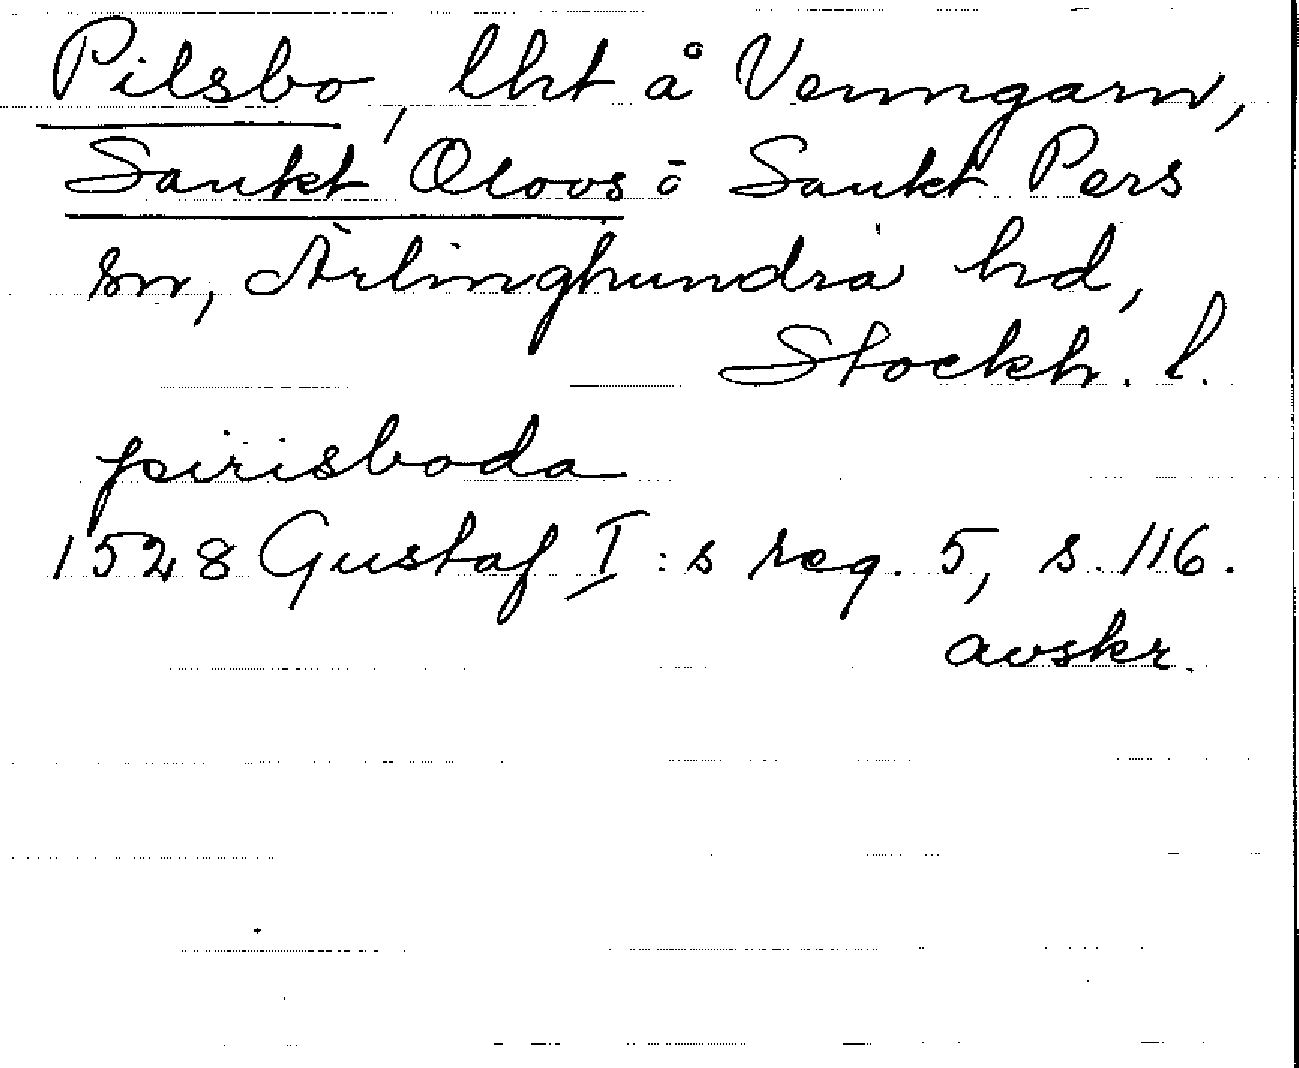 Pilsbo, lht å Venngarn,
Sankt Olovs o Sankt Pers
sn, Ärlinghundra hd,
Stockh. l.
pirisboda
1528 Gustaf I:s reg. 5, s. 116.
avskr.